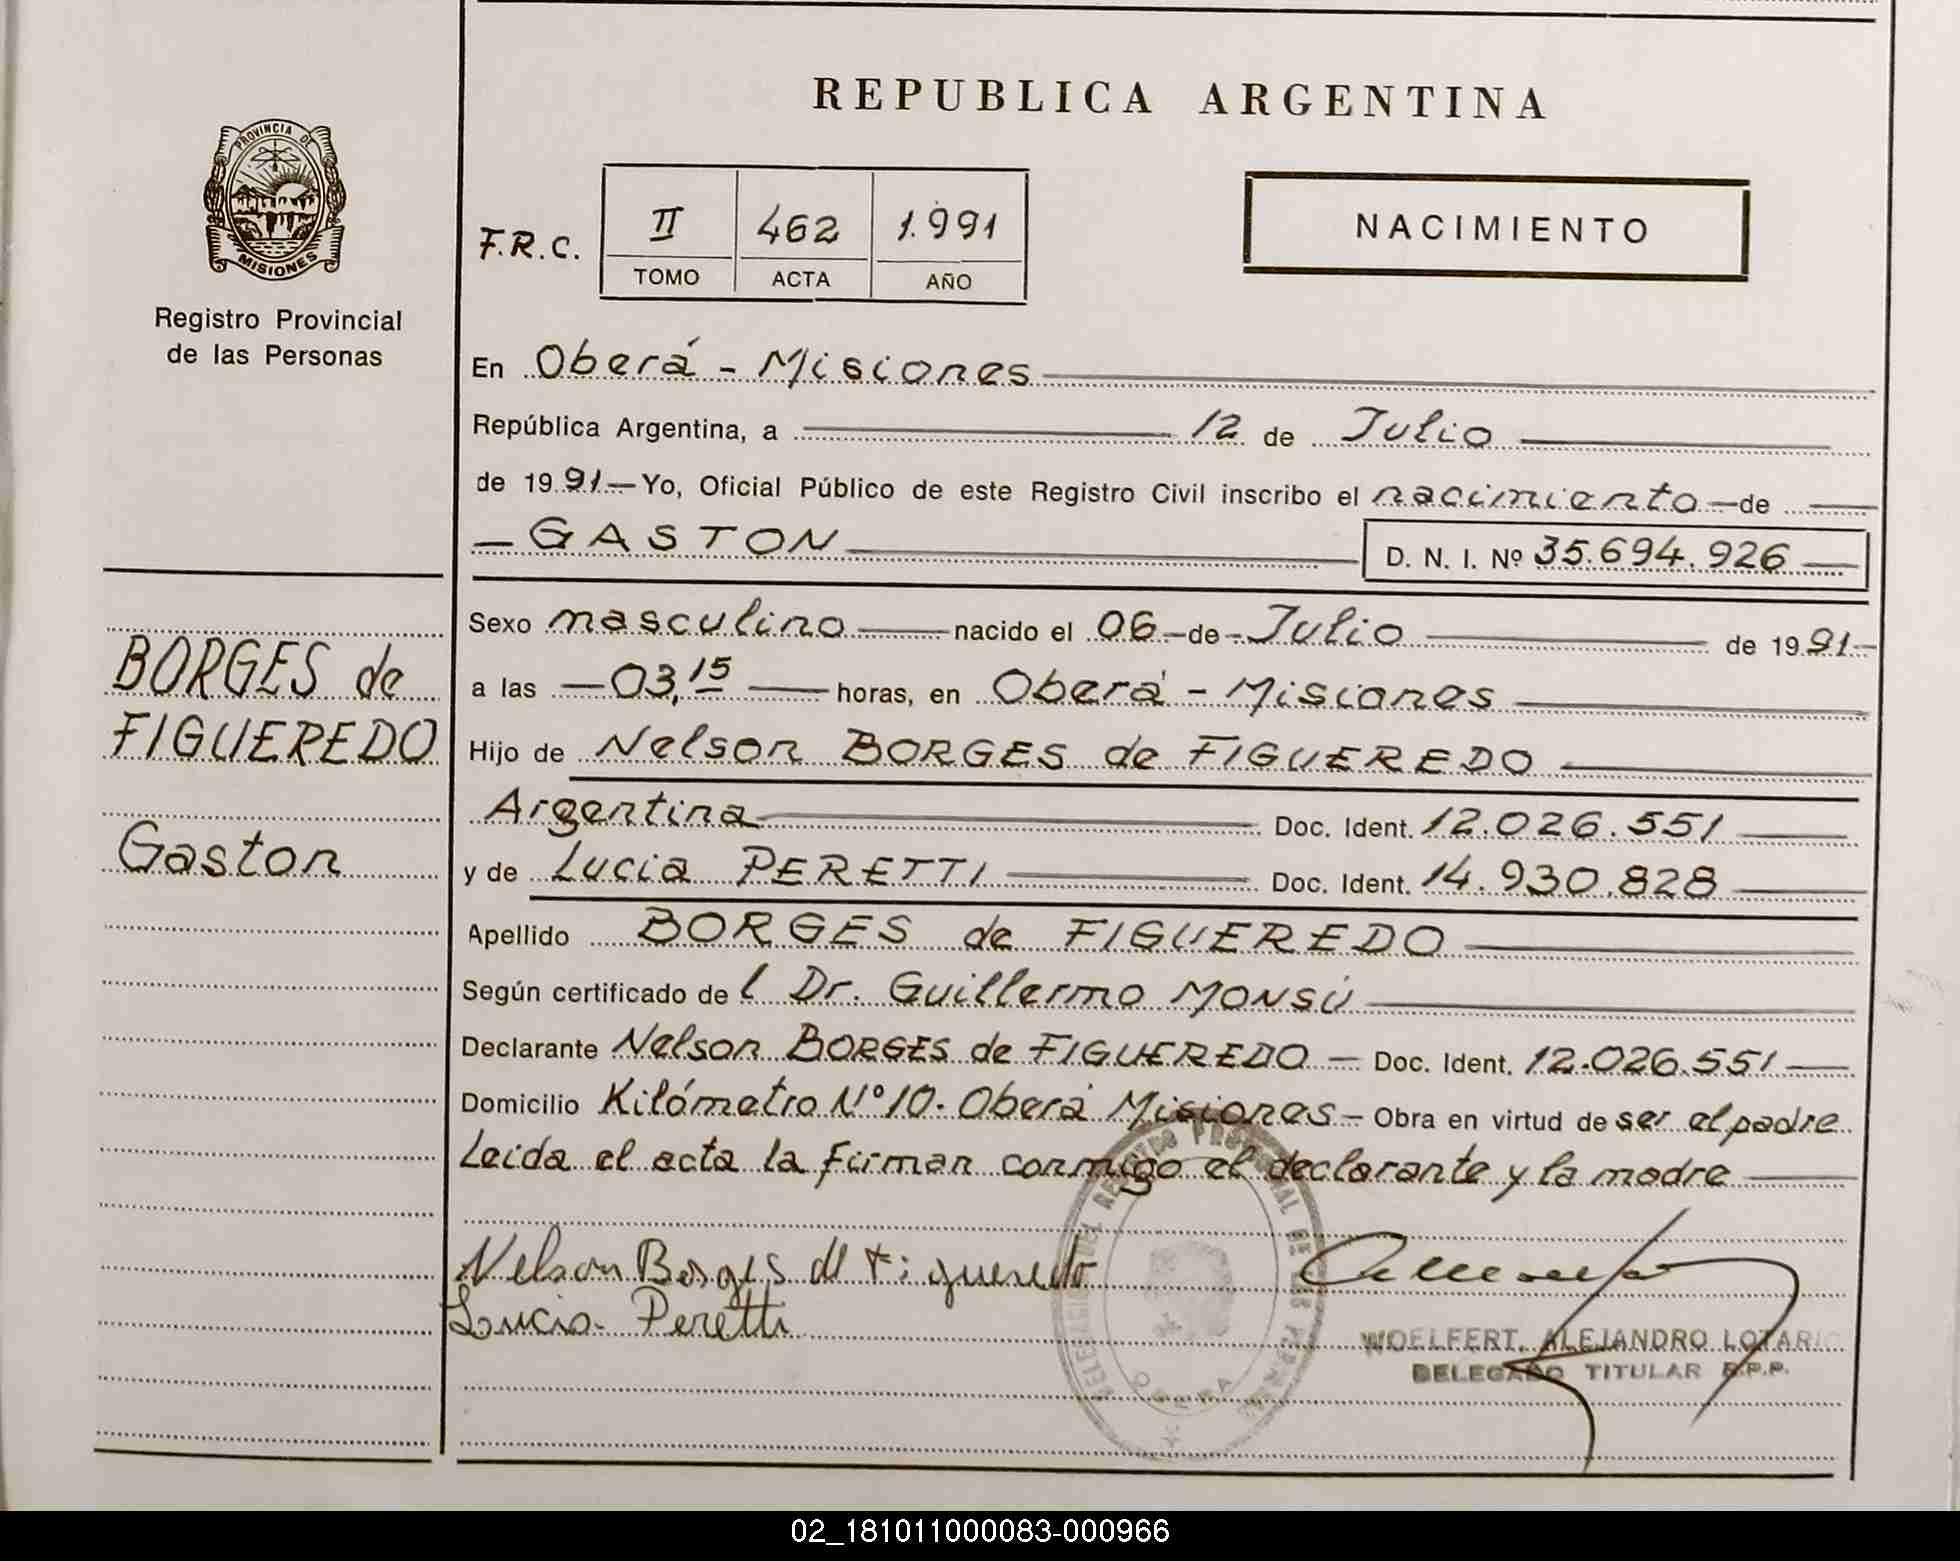 REPUBLICA ARGENTINA
PROVINCIA DE
MISIONES
Registro Provincial
de las Personas
F.R.C.
II 462 1.991
TOMO ACTA AÑO
NACIMIENTO
En Oberá - Misiones
República Argentina, a 12 de Julio
de 1991 Yo, Oficial Público de este Registro Civil inscribo el nacimiento de
GASTON D. N. I. Nº 35.694.926
BORGES de
FIGUEREDO
Gaston
Sexo masculino nacido el 06 de Julio de 1991
a las 03,15 horas, en Oberá - Misiones
Hijo de Nelson BORGES de FIGUEREDO
Argentina Doc. Ident. 12.026.551
y de Lucia PERETTI Doc. Ident. 14.930.828
Apellido BORGES de FIGUEREDO
Según certificado del Dr. Guillermo MONSÚ
Declarante Nelson BORGES de FIGUEREDO Doc. Ident. 12.026.551
Domicilio Kilómetro Nº 10. Oberá Misiones Obra en virtud de ser el padre
Leida el acta la firman conmigo el declarante y la madre
Nelson Borges de Figueredo
Lucia Peretti
WOELFERT, ALEJANDRO LOTARIO
DELEGADO TITULAR R.P.P.
02_181011000083-000966